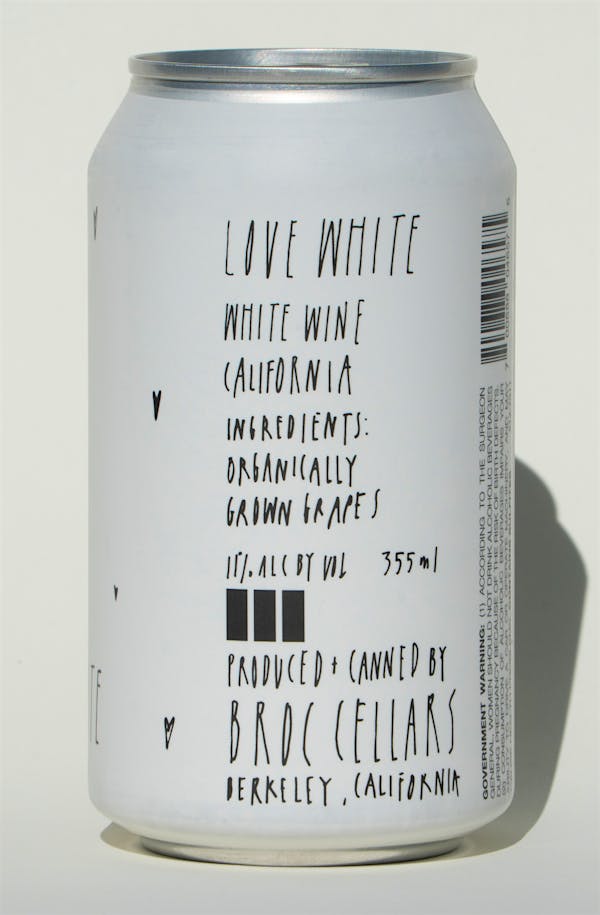 LOVE WHITE
WHITE WINE
CALIFORNIA
INGREDIENTS:
ORGANICALLY
GROWN GRAPES
ALC BY VOL 355ml
PRODUCED + CANNED BY
BROC CELLARS
BERKELEY, CALIFORNIA
TE
GOVERNMENT WARNING: (1) ACCORDING TO THE SURGEON
GENERAL, WOMEN SHOULD NOT DRINK ALCOHOLIC BEVERAGES
DURING PREGNANCY BECAUSE OF THE RISK OF BIRTH DEFECTS.
(2) CONSUMPTION OF ALCOHOLIC BEVERAGES IMPAIRS YOUR